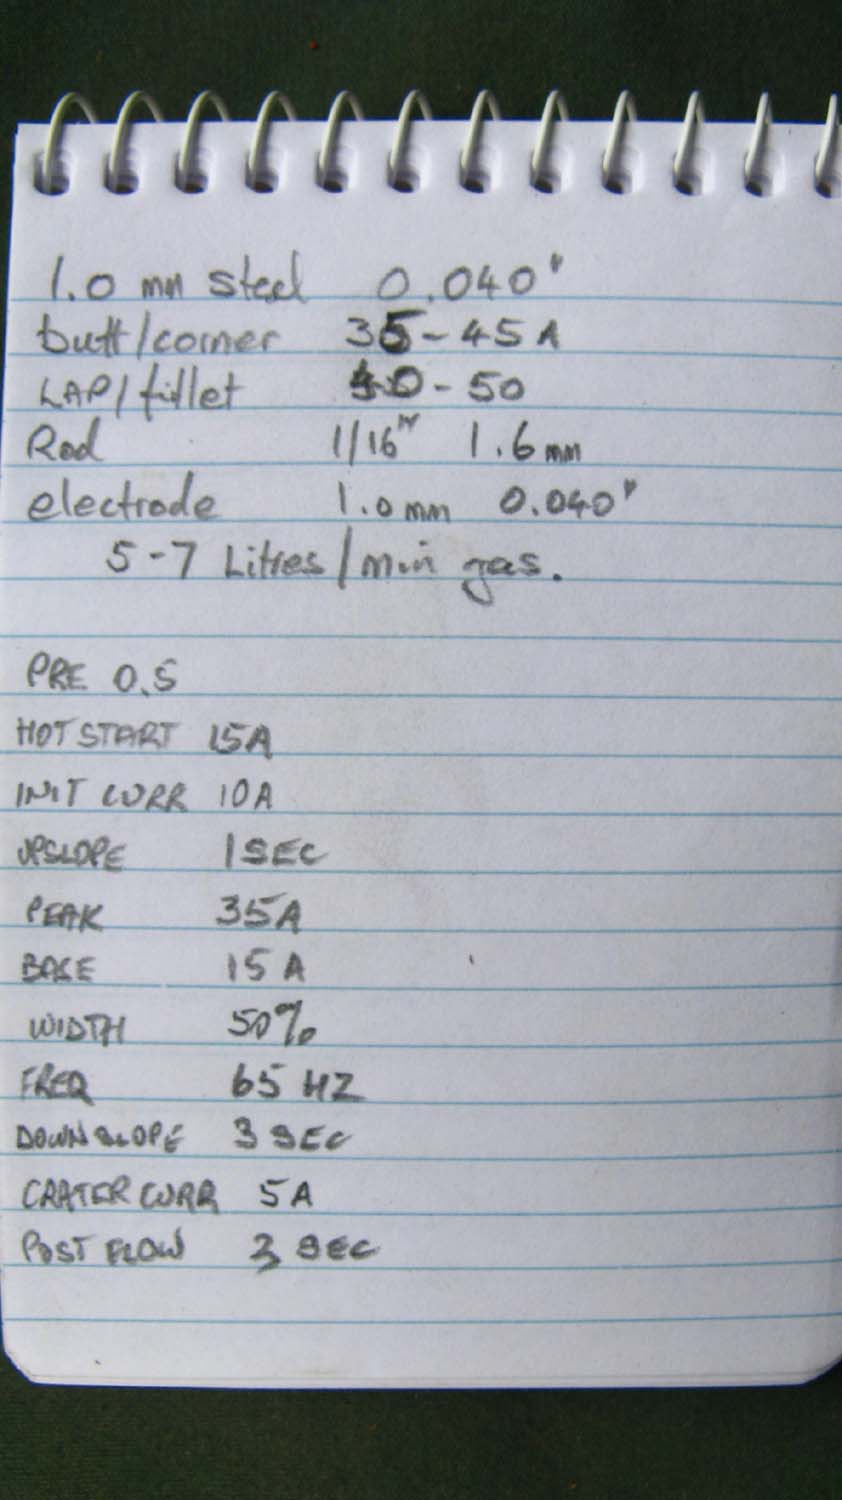 1.0 mm steel 0.040"
butt/corner 35-45 A
LAP/fillet 40-50
Rod 1/16" 1.6mm
electrode 1.0mm 0.040"
5-7 Litres/min gas.
PRE 0.5
HOT START 15A
INIT CURR 10A
UPSLOPE 1 SEC
PEAK 35A
BASE 15 A
WIDTH 50%
FREQ 65 HZ
DOWNSLOPE 3 SEC
CRATER CURR 5A
POST FLOW 3 SEC